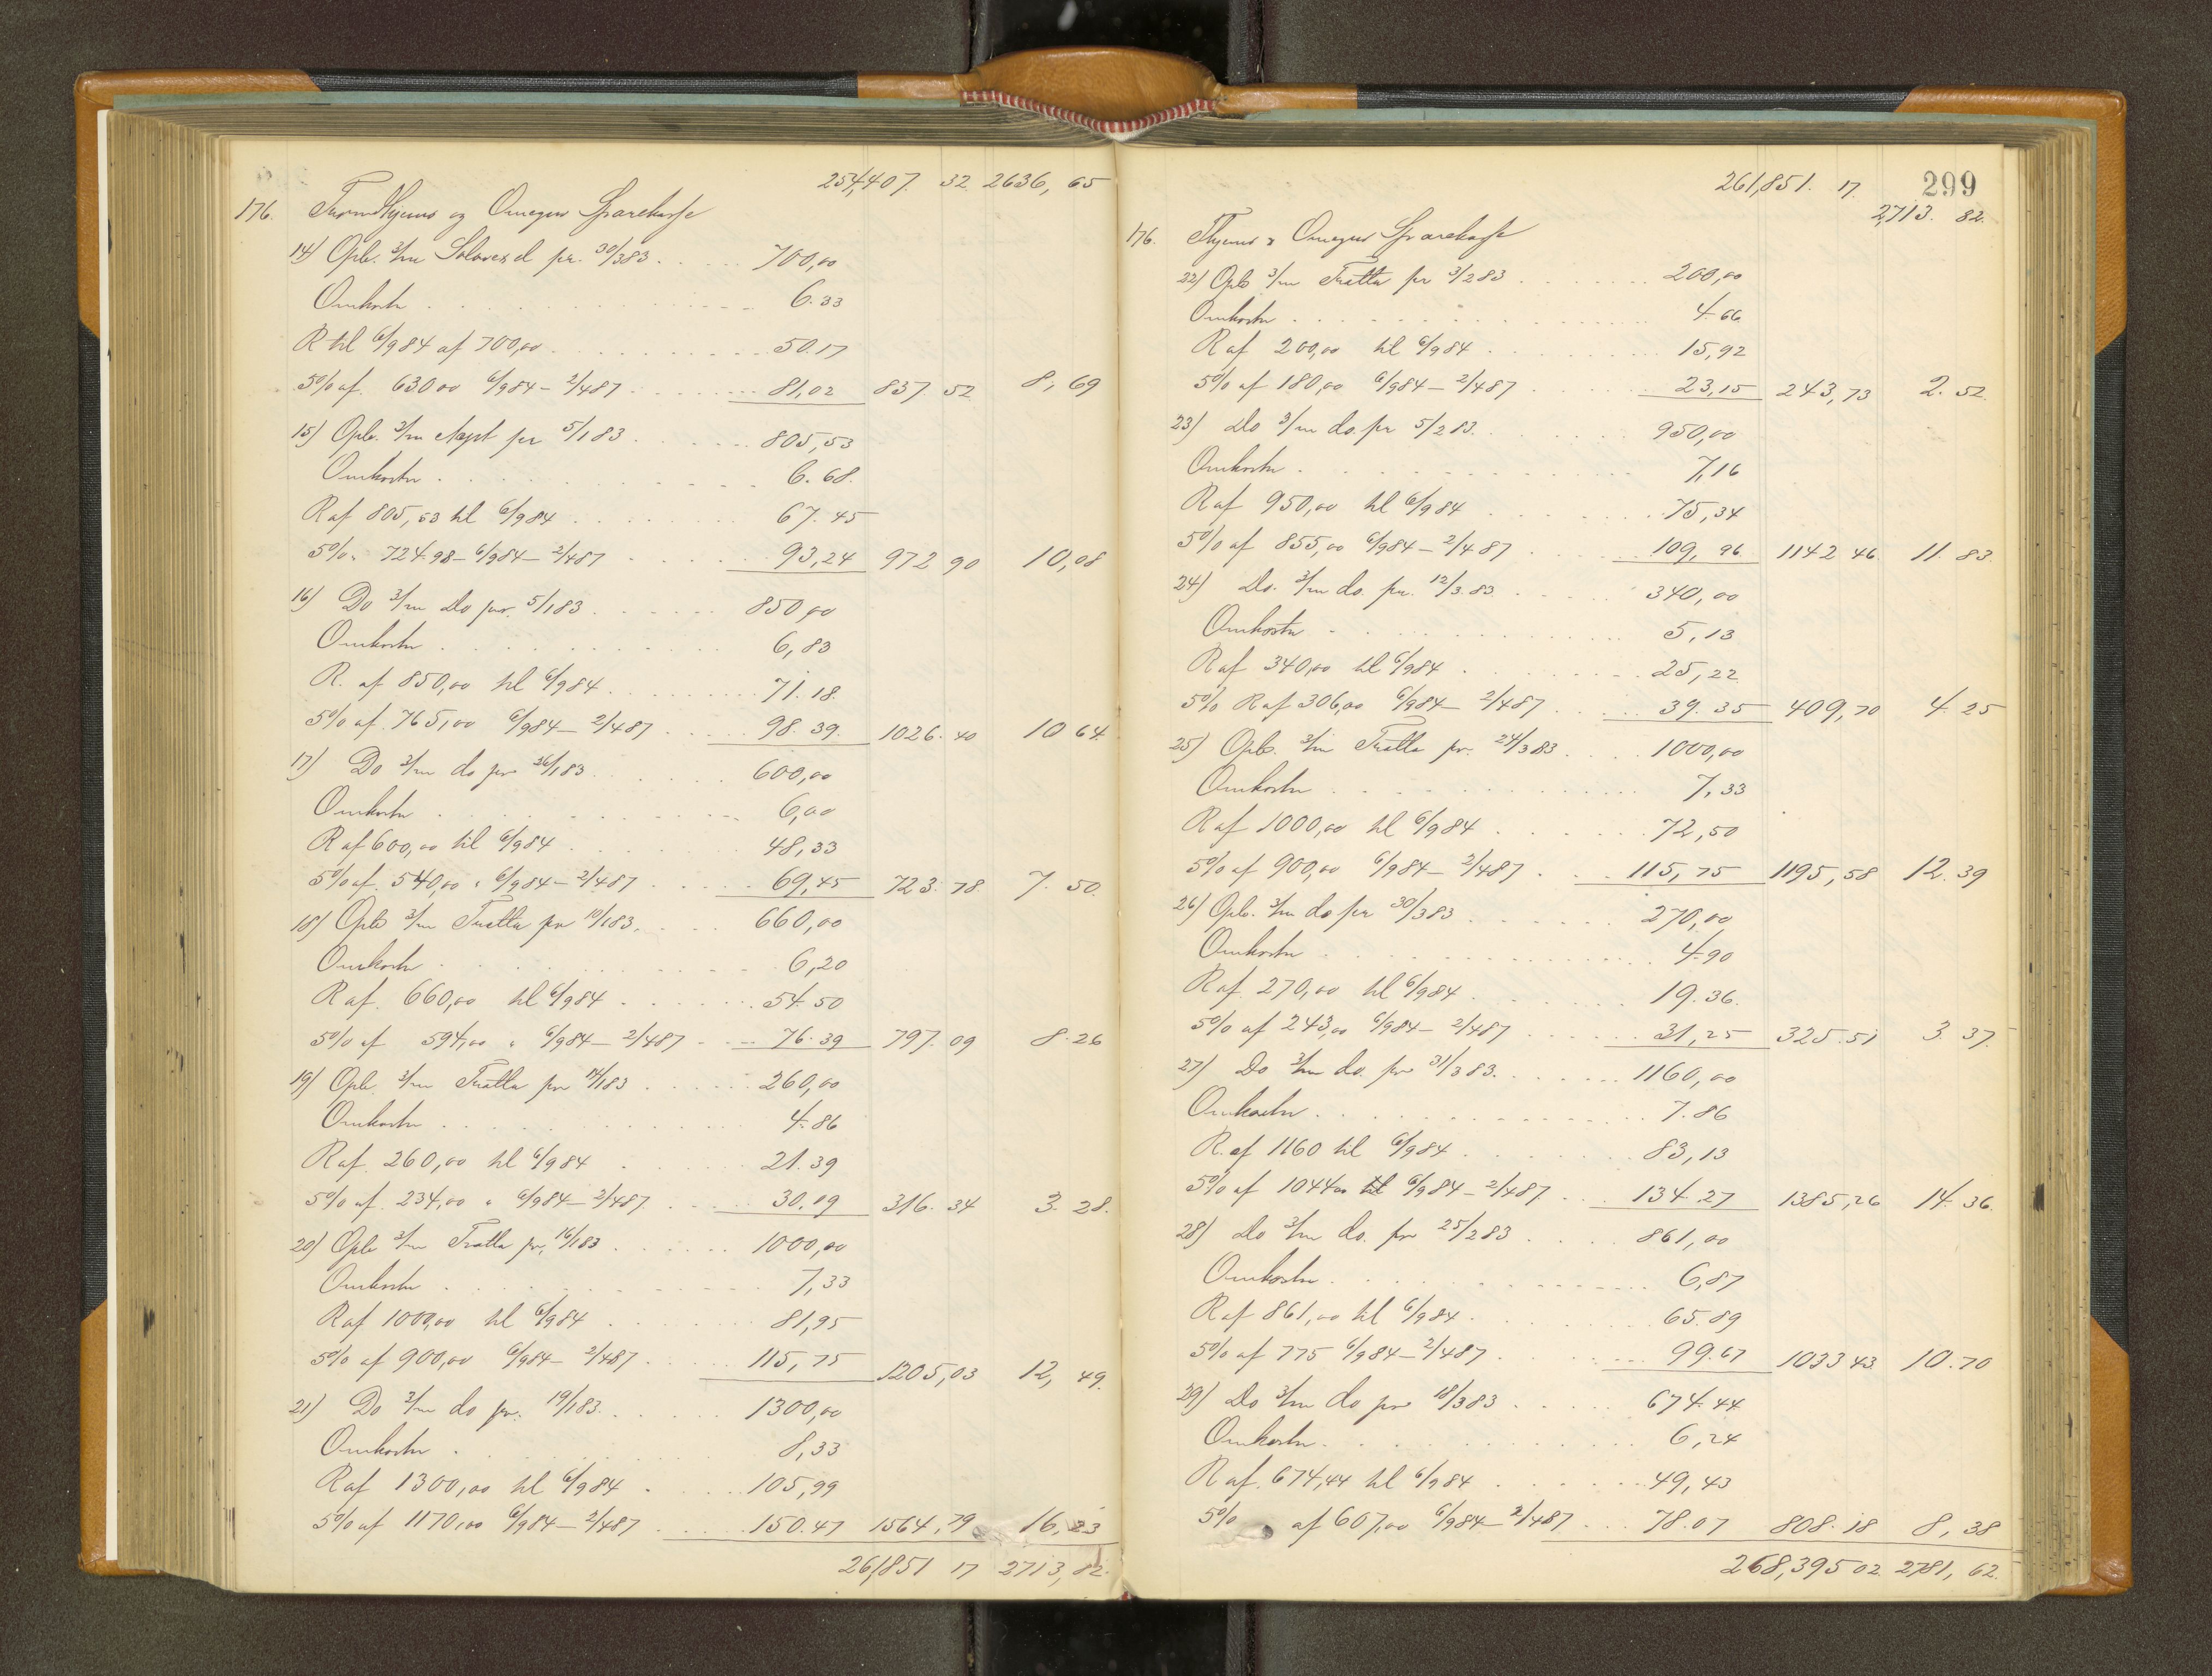 254,407. 32 2636, 65
176. Trondhjems og Omegns Sparekasse
14) Opb. 3/m Solavexel pr. 30/3 83 . . . . 700,00
Omkostn . . . . 6.33
R til 6/9 84 af 700,00 . . . . 50.17
5% af 630 00 6/9 84 – 2/4 87 . . . . 81,02 837. 52 8, 69
15) Opb. 3/m Acpt pr 5/1 83 . . . . 805,53
Omkostn . . . . 6.68.
R af 805,53 til 6/9 84 . . . . 67.45
5% " 724.98 – 6/9 84 – 2/4 87 . . . . 93,24 972 90 10,08
16) Do 3/m Do pr. 5/1 83 . . . . 850,00
Omkostn . . . . 6,83
R. af 850,00 til 6/9 84 . . . . 71.18.
5% af 765,00 6/9 84 – 2/4 87 . . . . 98.39. 1026.40 10 64.
17) Do 3/m do pr 26/1 83 . . . . 600,00
Omkostn . . . . 6,00
R af 600,00 til 6/9 84 . . . . 48,33
5% af 540,00 " 6/9 84 – 2/4 87 . . . . 69,45 723.78. 7.50.
18) Opb 3/m Tratta pr 10/1 83. . . . . 660,00
Omkostn . . . . 6,20
R af. 660,00 til 6/9 84 . . . . 54.50
5% af 594,00 " 6/9 84 – 2/4 87 . . . . 76.39 797.09 8.26
19) Opb 3/m Tratta pr 14/1 83 . . . . 260,00
Omkostn . . . . 4.86
R af. 260,00 til 6/9 84 . . . . 21.39
5% af. 234,00 " 6/9 84 – 2/4 87 . . . . 30.09 316.34 3.28.
20) Opb 3/m Tratta pr. 16/1 83 . . . . 1000,00
Omkostn . . . . 7,33
R af 1000,00 til 6/9 84 . . . . 81,95
5% af 900,00 6/9 84 – 2/4 87 . . . . 115,75 1205,03 12, 49.
21) Do 3/m do pr. 19/1 83. . . . . 1300,00
Omkostn . . . . 8,33
R af 1300,00 til 6/9 84 . . . . 105,99
5% af 1170,00 6/9 84 – 2/4 87 . . . . 150.47 1564,79 16,23
261,851 17 2713,82.
261,851. 17. 299
2,713. 82.
176. Thjems & Omegns Sparekasse
22) Opb 3/m Tratta pr 3/2 83 . . . . 200,00
Omkostn . . . . 4.66
R af 200,00 til 6/9 84 . . . . 15,92
5% af 180,00 6/9 84 – 2/4 87 . . . . 23,15 243,73 2.52.
23) Do 3/m do. pr 5/2 83. . . . . 950,00
Omkostn . . . . 7,16
R af 950,00 til 6/9 84 . . . . 75,34
5% af 855,00 6/9 84 – 2/4 87 . . . . 109,96 1142 46. 11.83.
24) Do. 3/m do. pr. 12/3 83. . . . . 340,00
Omkostn . . . . 5,13
R af 340,00 til 6/9 84 . . . . 25,22
5% R af 306,00 6/9 84 – 2/4 87 . . . . 39.35 409,70 4.25
25) Opb. 3/m Tratta pr. 24/3 83 . . . . 1000,00
Omkostn . . . . 7,33
R af 1000,00 til 6/9 84 . . . . 72,50
5% af 900,00 6/9 84 – 2/4 87 . . . . 115,75 1195,58 12.39
26) Opb. 3/m do pr 30/3 83 . . . . 270,00
Omkostn . . . . 4.90
R af. 270,00 til 6/9 84 . . . . 19.36.
5% af 243,00 6/9 84 – 2/4 87 . . . . 31,25 325.51 3.37.
27) Do 3/m do. pr 31/3 83. . . . . 1160,00
Omkostn . . . . 7.86
R. af 1160 til 6/9 84 . . . . 83,13
5% af 1044 00 til 6/9 84 – 2/4 87. . . . . 134.27 1385,26 14.36.
28) Do 3/m do. pr 25/2 83 . . . . 861,00
Omkostn . . . . 6,87
R af 861,00 til 6/9 84. . . . . 65.89
5% af 775 6/9 84 – 2/4 87. . . . . 99.67 1033 43 10.70
29) Do 3/m do pr 18/3 83 . . . . 674.44
Omkostn. . . . . 6,24
R af. 674,44 til 6/9 84 . . . . 49,43
5% af 607,00 6/9 84 – 2/4 87 . . . . 78.07 808.18 8,38
268,395 02 2781, 62.